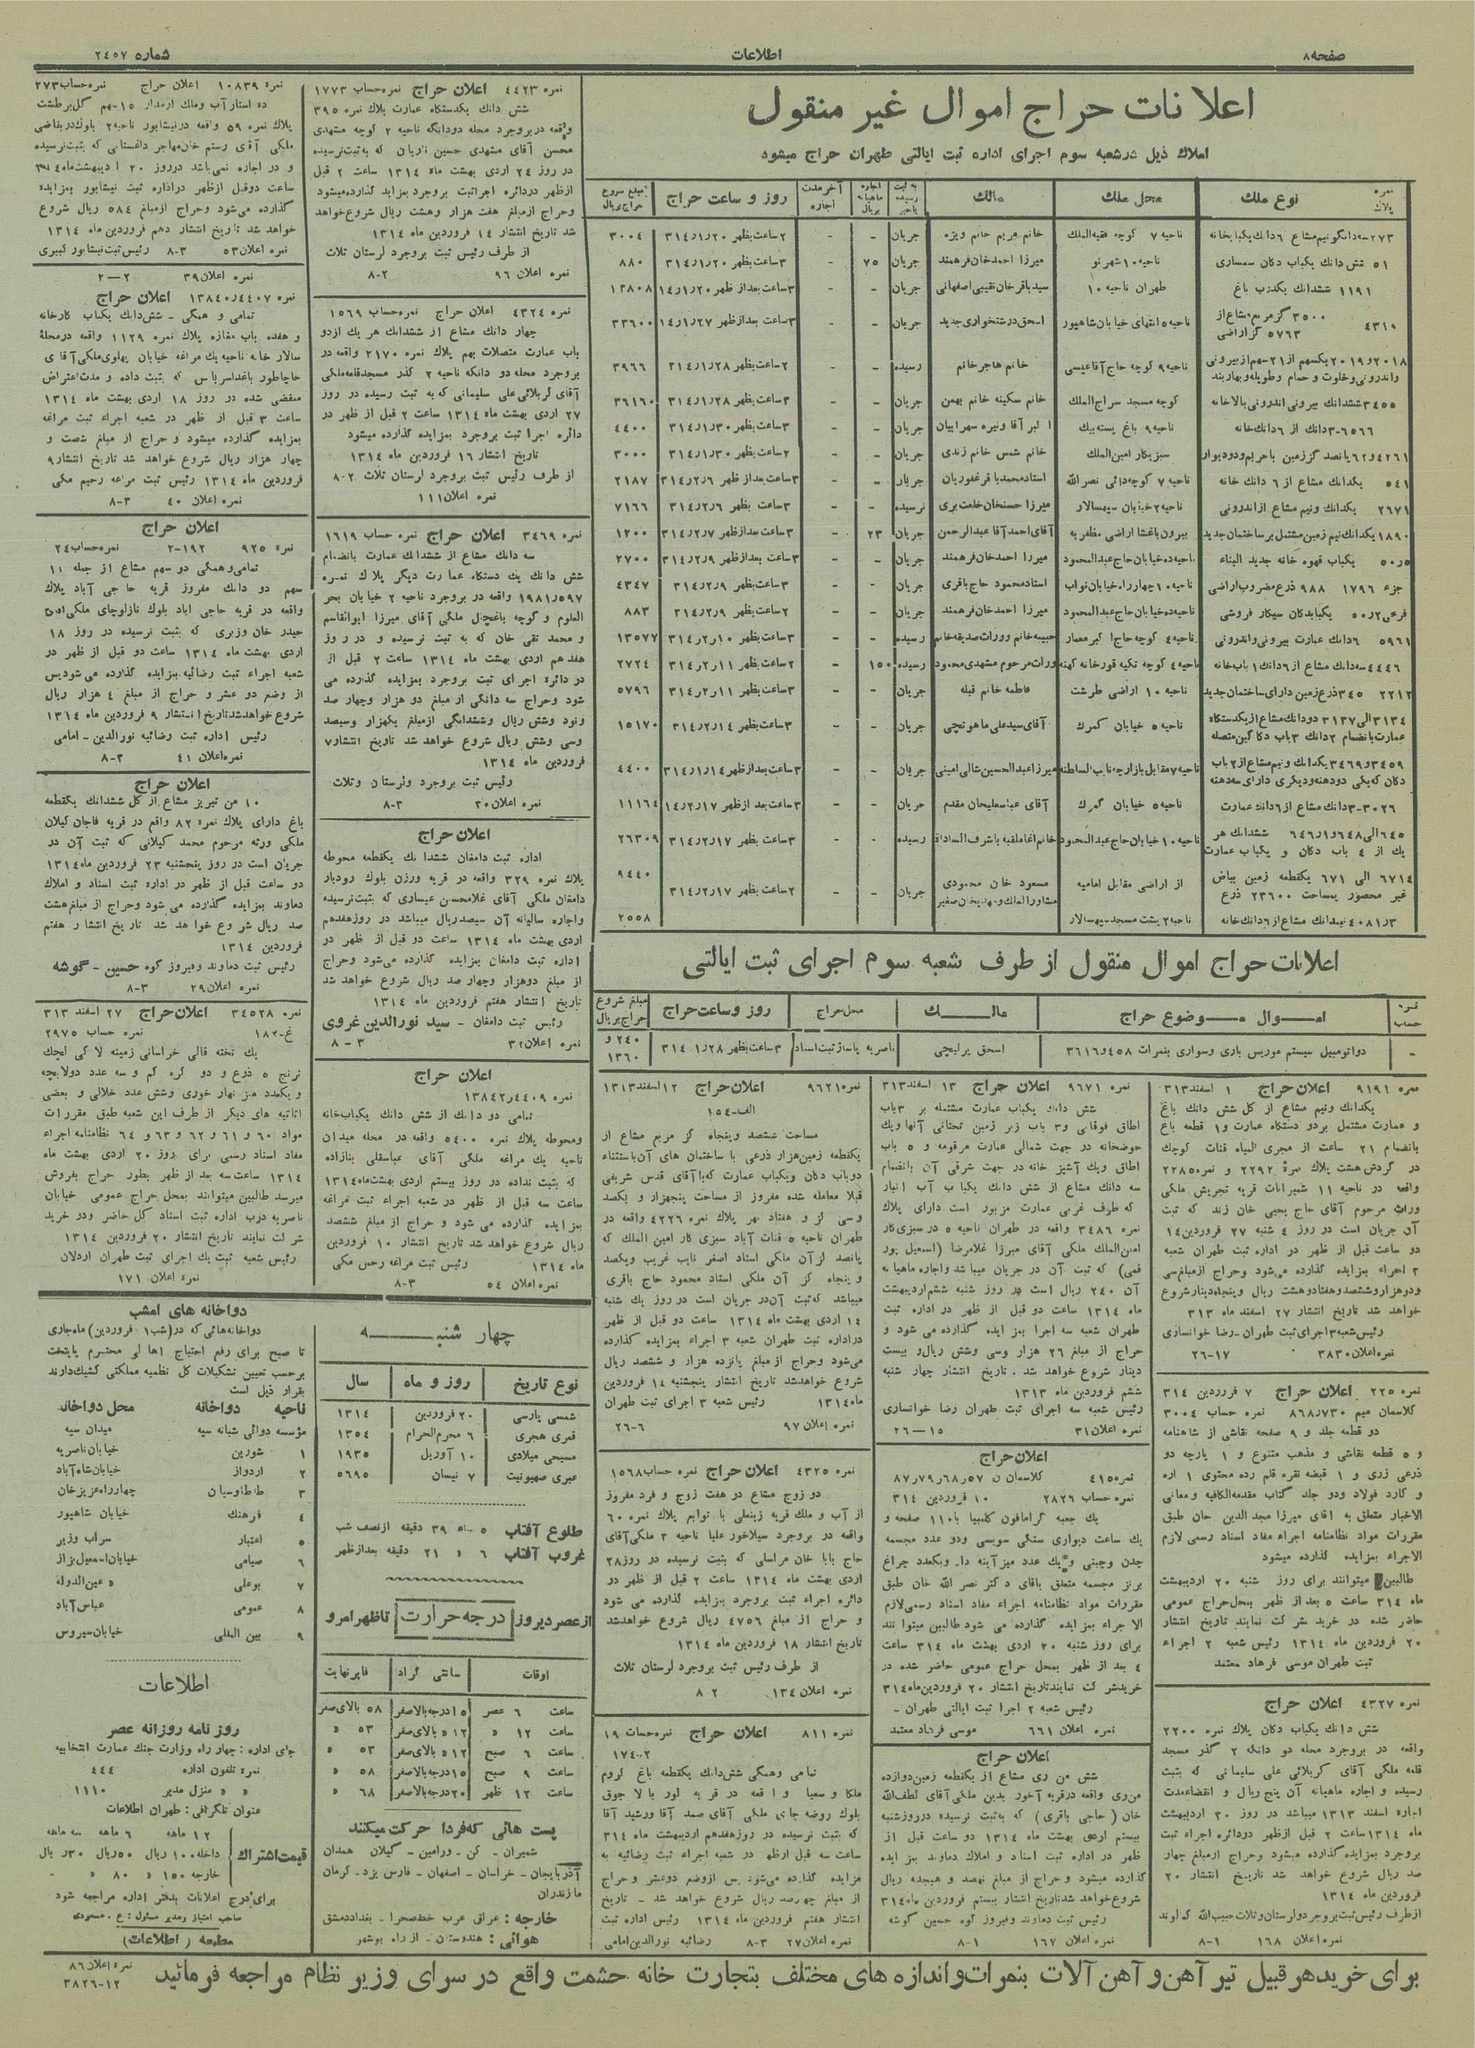 صفحه ۸
اطلاعات
شماره ۲٤٥۷
اعلانات حراج اموال غیر منقول
املاك ذیل درشعبه سوم اجرای اداره ثبت ایالتی طهران حراج میشود
نمره پلاك | نوع ملك | محل ملك | مالك | به ثبت رسیده یاخیر | اجاره ماهیانه بریال | آخر مدت اجاره | روز و ساعت حراج | مبلغ شروع حراج بریال
۲۷۳-سه‌دانگ‌ونیم مشاع ٦دانك یكبابخانه | ناحیه ۷ كوچه فقیه‌الملك | خانم مریم خانم ویژه | جریان | - | - | ۲ساعت بظهر ۳۱٤٫۱٫۲۰ | ۳۰۰٤
٥۱ شش دانك یكباب دكان سمساری | ناحیه۱۰ شهر نو | میرزا احمدخان فرهمند | جریان | ۷٥ | - | ۳ساعت بظهر ۳۱٤٫۱٫۲۰ | ۸۸۰
۱۱۹۱ ششدانك یكدرب باغ | طهران ناحیه ۱۰ | سیدباقرخان نقیبی اصفهانی | جریان | - | - | ۳ساعت بعداز ظهر ۱٤٫۱٫۲۰ | ۱۳۸۰۸
٤۳۱۰ ۳٥۰۰ گزمربع مشاع از ٥۷٦۳ گز اراضی | ناحیه٥ انتهای خیابان شاهپور | اسحق درشتخواری جدید | جریان | - | - | ۳ساعت بعدازظهر ۱٤٫۱٫۲۷ | ۳۳٦۰۰
۲۰۱۸و۲۰۱۹ یكسهم از ۲۱سهم از بیرونی واندرونی وخلوت و حمام وطویله وبهاربند | ناحیه ۹ كوچه حاج آقاعیسی | خانم هاجر خانم | رسیده | - | - | ۲ساعت بظهر ۳۱٤٫۱٫۲۸ | ۳۹٦٦
۳٤٥٥ ششدانك بیرونی اندرونی بالاخانه | كوچه مسجد سراج الملك | خانم سكینه خانم بهمن | جریان | - | - | ۳ساعت بظهر ۳۱٤٫۱٫۲۸ | ۳٦۱٦۰
٦٥٦٦-۳دانك از ٦دانك خانه | ناحیه ۹ باغ پسته‌بیك | جریان | - | - | ۳ساعت بظهر ۳۱٤٫۱٫۳۰ | ٤٤۰۰
| سبزیكار امین‌الملك | خانم شمس خانم زندی | جریان | - | - | ۲ساعت بظهر ۳۱٤٫۱٫۳۰ | ۳۰۰۰
٥٤۱ یكدانك مشاع از ٦ دانك خانه | ناحیه ۷ كوچه‌دائی نصرالله | جریان | - | - | ۳ساعت بعدازظهر ۳۱٤٫۲٫٦ | ۲۱۸۷
۲٦۷۱ یكدانك ونیم مشاع ازاندرونی | ناحیه ۲ خیابان سپهسالار | نرسیده | - | - | ۳ساعت بظهر ۳۱٤٫۲٫٦ | ۷۱٦٦
۱۸۹۰ یكدانك نیم زمین مشتمل برساختمان جدید | بیرون باغشا اراضی مظفریه | آقای احمدآقا عبدالرحمن | جریان | ۲۳ | - | ۳ساعت بعدازظهر ۳۱٤٫۲٫۷ | ۱۲۰۰
٥ر٥۰ یكباب قهوه خانه جدید البناء | ناحیه‌ده‌خیابان حاج‌عبدالمحمود | میرزا احمدخان فرهمند | جریان | - | - | ۳ساعت بعدظهر ۳۱٤٫۲٫۹ | ۲۷۰۰
جزء ۱۷۹٦ ۹۸۸ ذرع مضروب‌اراضی | ناحیه۱۰چهارراه‌خیابان نواب | استادمحمود حاج‌باقری | جریان | - | - | ۳ساعت بظهر ۳۱٤٫۲٫۹ | ٤۳٤۷
فرعی ۲ر٥۰ یكبابدكان سیگار فروشی | ناحیه‌ده‌خیابان حاج‌عبدالمحمود | میرزا احمدخان فرهمند | جریان | - | - | ۲ساعت بظهر ۳۱٤٫۲٫۹ | ۸۸۳
٥۹٦۱ ٦دانك عمارت بیرونی‌واندرونی | ناحیه٤ كوچه حاج‌اكبرمعمار | حبیبه‌خانم وورات صدیقه‌خانم | رسیده | - | - | ۳ساعت بظهر ۳۱٤٫۲٫۱۰ | ۱۳٥۷۷
٤٤٤٦سه‌دانك مشاع از ٦دانك ۱ باب خانه | ناحیه٤ كوچه تكیه قورخانه كهنه | ورات مرحوم مشهدی محمود | رسیده | ۱٥۰ | - | ۲ساعت بظهر ۳۱٤٫۲٫۱۱ | ۲۷۲٤
۲۲۱۲ ۳٤٥ذرع زمین دارای‌ساختمان جدید | ناحیه ۱۰ اراضی طرشت | فاطمه خانم قبله | جریان | - | - | ۳ساعت بظهر ۳۱٤٫۲٫۱۱ | ٥۷۹٦
۳۱۳٤الی۳۱۳۷ دودانك مشاع ازیكدستگاه عمارت بانضمام ۲دانك ۳باب دكاكین متصله | ناحیه ٥ خیابان گمرك | آقای سیدعلی ماهوتچی | جریان | - | - | ۳ساعت بظهر ۳۱٤٫۲٫۱٤ | ۱٥۱۷۰
۳٤٥۹و۳٤٦۹ یكدانك ونیم مشاع از ۲ باب دكان كه‌یكی دودهنه ودیگری دارای سه‌دهنه | ناحیه۷مقابل بازارچه نایب‌السلطنه | میرزاعبدالحسین شالی امینی | جریان | - | - | ۳ساعت بعدازظهر ۳۱٤٫۱٫۱٤ | ٤٤۰۰
۳۰۲٦-۳دانك مشاع از ٦دانك عمارت | ناحیه٥ خیابان گمرك | آقای عباسعلیخان مقدم | جریان | - | - | ۳ساعت بعد ازظهر ۱٤٫۲٫۱۷ | ۱۱۱٦٤
٦٤٥الی٦٤۸و۱ر٦٤٦ ششدانك هر یك از ٤ باب دكان و یكباب عمارت | ناحیه۱۰خیابان حاج‌عبدالمحمود | خانم‌اغاملقبه باشرف السادات | رسیده | - | - | ۳ساعت بظهر ۳۱٤٫۲٫۱۷ | ۲٦۳۰۹
٦۷۱٤ الی ٦۷۱ یكقطعه زمین بیاض غیر محصور بمساحت ۲۳٦۰۰ ذرع | از اراضی مقابل امامیه | مسعود خان محمودی | جریان | - | - | ۲ساعت بظهر ۳۱٤٫۲٫۱۷ | ۹٤٤۰
۳ر٤۰۸۱ نیمدانك مشاع از ٦دانك خانه | ناحیه۲ پشت مسجد سپهسالار | ۲٥٥۸
اعلانات حراج اموال منقول از طرف شعبه سوم اجرای ثبت ایالتی
نمره حساب | امـــوال مـــوضوع حراج | مالـــك | محل‌حراج | روز وساعت‌حراج | مبلغ شروع حراج بریال
- | دواتومبیل سیستم موریس باری وسواری بنمرات ٤٥۸و۳٦۱٦ | اسحق پراپچی | ناصریه پاساژ ثبت اسناد | ۳ساعت بظهر ۳۱٤٫۱٫۲۸ | ۲٤۰ و ۱۳٦۰
نمره ۹۱۹۱ اعلان حراج ۱ اسفند ۳۱۳
یكدانك ونیم مشاع از كل شش دانك باغ
و عمارت مشتمل بردو دستگاه عمارت و۱ قطعه باغ
بانضمام ۲۱ ساعت از مجری المیاه قنات كوچك
در گردش هشت پلاك نمرهٔ ۲۲۹۲ و نمره ۲۲۸٥
واقعه در ناحیه ۱۱ شمیرانات قریه تجریش ملكی
وراث مرحوم آقای حاج یحیی خان زند كه ثبت
آن جریان است در روز ٤ شنبه ۲۷ فروردین۱٤
دو ساعت قبل از ظهر در اداره ثبت طهران شعبه
۳ اجراء بمزایده گذارده می‌شود وحراج ازمبلغ‌سی
ودوهزار وششصدوهفتادوهشت ریال وپنجاه‌دینارشروع
خواهد شد تاریخ انتشار ۲۷ اسفند ماه ۳۱۳
رئیس شعبه۳اجرای ثبت طهران-رضا خوانساری
نمره‌اعلان ۳۸۳۰ ۱۷-۲٦
نمره ۲۲٥ اعلان حراج ۷ فروردین ۳۱٤
كلاسمان میم ۸٦۸٫۷۳۰ نمره حساب ۳۰۰٤
دو قطعه جلد و ۹ صفحه نقاشی از شاهنامه
و ٥ قطعه نقاشی و مذهب متنوع و ۱ پارچه دو
ذرعی زری و ۱ قبضه نقره قلم زده محتوی ۱ اره
و كارد فولاد ودو جلد كتاب مقدمه‌الكافیه و معانی
الاخبار متعلق به آقای میرزا مجد الدین خان طبق
مقررات مواد نظامنامه اجراء مفاد اسناد رسمی لازم
الاجراء بمزایده گذارده میشود
طالبین میتوانند برای روز شنبه ۲۰ اردیبهشت
ماه ۳۱٤ ساعت ٥ بعد از ظهر بمحل‌حراج عمومی
حاضر شده در خرید شركت نمایند تاریخ انتشار
۲۰ فروردین ماه ۱۳۱٤ رئیس شعبه ۲ اجراء
ثبت طهران موسی فرهاد معتمد
نمره ٤۳۲۷ اعلان حراج
شش دانك یكباب دكان پلاك نمره ۲۲۰۰
واقعه در بروجرد محله دو دانگه ۲ گذر مسجد
قلعه ملكی آقای كربلائی علی سلیمانی كه بثبت
رسیده و اجاره ماهیانه آن پنج‌ریال و انقضاءمدت
اجاره اسفند ۱۳۱۳ میباشد در روز ۳۰ اردیبهشت
ماه ۱۳۱٤ساعت ۲ قبل ازظهر دردائره اجراء ثبت
بروجرد بمزایده گذارده میشود وحراج ازمبلغ چهار
صد ریال شروع خواهد شد تاریخ انتشار ۲۰
فروردین ماه ۱۳۱٤
ازطرف رئیس ثبت بروجردولرستان وثلاث حبیب‌الله كماوند
نمره اعلان ۱٦۸ ۱-۸
نمره ۹٦۷۱ اعلان حراج ۱۳ اسفند۳۱۳
شش دانك یكباب عمارت مشتمله بر ۳باب
اطاق فوقانی و۳ باب زیر زمین تحتانی آنها ویك
حوضخانه در جهت شمالی عمارت مرقومه و ٥ باب
اطاق ویك آشپز خانه در جهت شرقی آن بانضمام
سه دانك مشاع از شش دانك یكباب آب انبار
كه طرف غربی عمارت مزبور است دارای پلاك
نمره ۳٤۸٦ واقعه در طهران ناحیه ٥ در سبزی‌كار
امین‌الملك ملكی آقای میرزا غلامرضا (اسمعیل پور
قمی) كه ثبت آن در جریان میباشد واجاره ماهیانه
آن ۲٤۰ ریال است در روز شنبه ششم‌اردیبهشت
ماه ۱۳۱٤ ساعت دو قبل از ظهر در اداره ثبت
طهران شعبه سه اجرا بمزایده گذارده می شود و
حراج از مبلغ ۲٦ هزار وسی وشش ریال‌و بیست
دینار شروع خواهد شد . تاریخ انتشار چهار شنبه
ششم فروردین ماه ۱۳۱۳
رئیس شعبه سه اجرای ثبت طهران رضا خوانساری
نمره اعلان ۳۱ ۱٥-۲٦
اعلان حراج
نمره ٤۱٥ كلاسمان ن ٥۷ر٦۸ر۷۹ر۸۷
نمره حساب ۲۸۲٦ ۱۰ فروردین ۳۱٤
یك جعبه گرامافون كلمبیا با ۱۱۰ صفحه و
یك ساعت دیواری سنگی سویسی ودو عدد مجسمه
چدن وچینی و یك عدد میز آینه دار ویكعدد چراغ
برنز مجسمه متعلق بآقای دكتر نصر الله خان طبق
مقررات مواد نظامنامه اجراء مفاد اسناد رسمی‌لازم
الاجراء بمزایده گذارده می شود طالبین میتوانند
برای روز شنبه ۲۰ اردی بهشت ماه ۳۱٤ ساعت
٤ بعد از ظهر بمحل حراج عمومی حاضر شده در
خریدشركت نمایندتاریخ انتشار ۲۰ فروردین‌ماه۳۱٤
رئیس شعبه ۲ اجرا ثبت ایالتی طهران-
نمره اعلان ٦٦۱ موسی فرهاد معتمد
اعلان حراج
شش من ری مشاع از یكقطعه زمین‌دوازده
من‌ری واقعه درقریه آخور بدین ملكی آقای لطف‌الله
خان (حاجی باقری) كه به‌ثبت نرسیده درروزشنبه
بیستم اردی بهشت ماه ۱۳۱٤ دو ساعت قبل از
ظهر در اداره ثبت اسناد و املاك دماوند بمزایده
گذارده میشود و حراج از مبلغ نهصد و هیجده ریال
شروع خواهد شدتاریخ انتشار بیستم فروردین ماه۳۱٤
رئیس ثبت دماوند وفیروز كوه حسین گوشه
نمره اعلان ۱٦۷ ۱-۸
نمره ۹٦۲۱ اعلان حراج ۱۲ اسفند۱۳۱۳
الف-۱٥٤
مساحت ششصد وپنجاه گز مربع مشاع از
یكقطعه زمین‌هزار ذرعی با ساختمان های آن‌باستثناء
دوباب دكان ویكباب عمارت كه‌باآقای قدس شریفی
قبلا معامله شده مفروز از مساحت پنجهزار و یكصد
وسی گز و هفتاد نهر پلاك نمره ٤۲۲٦ واقعه در
طهران ناحیه ٥ قنات آباد سبزی كار امین الملك كه
پانصد گزآن ملكی استاد اصغر نایب غریب ویكصد
و پنجاه گز آن ملكی استاد محمود حاج باقری
میباشد كه‌ثبت آن‌در جریان است در روز یك شنبه
۱٤ اردی بهشت ماه ۱۳۱٤ ساعت دو قبل از ظهر
دراداره ثبت طهران شعبه ۳ اجراء بمزایده گذارده
می‌شود وحراج ازمبلغ پانزده هزار و ششصد ریال
شروع خواهدشد تاریخ انتشار پنجشنبه ۱٤ فروردین
ماه۱۳۱٤ رئیس شعبه ۳ اجرای ثبت طهران
نمره اعلان ۹۷ ٦-۲٦
نمره ٤۳۲٥ اعلان حراج نمره حساب۱٥٦۸
دو زوج مشاع در هفت زوج و فرد مفروز
از آب و ملك قریه زینعلی با توابع پلاك نمره ٦۰
واقعه در بروجرد سیلاخور علیا ناحیه ۳ ملكی‌آقای
حاج بابا خان مراسلی كه بثبت نرسیده در روز۲۸
اردی بهشت ماه ۱۳۱٤ ساعت ۲ قبل از ظهر در
دائره اجراء ثبت بروجرد بمزایده گذارده می شود
و حراج از مبلغ ٤۷٥٦ ریال شروع خواهدشد
تاریخ انتشار ۱۸ فروردین ماه ۱۳۱٤
از طرف رئیس ثبت بروجرد لرستان ثلاث
نمره اعلان ۱۳٤ ۲-۸
نمره ۸۱۱ اعلان حراج نمره‌حساب ۱۹
۱۷٤۰۰۲
تمامی وهمگی شش‌دانك یكقطعه باغ كروم
بلوك روضه چای ملكی آقای صمد آقا ورشید آقا
كه بثبت نرسیده در روز هفدهم اردیبهشت ماه ۳۱٤
ساعت سه قبل ازظهر در شعبه اجراء ثبت رضائیه به
مزایده گذارده می‌شودپس ازوضع دوعشر وحراج
از مبلغ چهارصد ریال شروع خواهد شد - تاریخ
انتشار هفتم فروردین ماه ۱۳۱٤ رئیس اداره ثبت
نمره اعلان۲۷ ۳-۸ رضائیه نورالدین‌امامی
نمره ٤٤۲۳ اعلان حراج نمره حساب ۱۷۷۳
شش دانك یكدستگاه عمارت پلاك نمره ۳۹٥
واقعه در بروجرد محله دودانگه ناحیه ۲ كوچه مشهدی
محسن آقای مشهدی حسین ناریان كه به‌ثبت‌نرسیده
در روز ۲٤ اردی بهشت ماه ۱۳۱٤ ساعت ۲ قبل
ازظهر دردائره اجراثبت بروجرد بمزاید گذارده‌میشود
وحراج ازمبلغ هفت هزار وهشت ریال شروع‌خواهد
شد تاریخ انتشار ۱٤ فروردین ماه ۱۳۱٤
از طرف رئیس ثبت بروجرد لرستان ثلاث
نمره اعلان ۹٦ ۲-۸
نمره ٤۳۲٤ اعلان حراج نمره حساب ۱٥٦۹
چهار دانك مشاع از ششدانك هر یك ازدو
باب عمارت متصلات بهم پلاك نمره ۲۱۷۰ واقعه در
بروجرد محله دو دانگه ناحیه ۲ گذر مسجدقلعه‌ملكی
آقای كربلائی علی سلیمانی كه به ثبت رسیده در روز
۲۷ اردی بهشت ماه ۱۳۱٤ ساعت ۲ قبل از ظهر در
دائره اجرا ثبت بروجرد بمزایده گذارده میشود
تاریخ انتشار ۱٦ فروردین ماه ۱۳۱٤
از طرف رئیس ثبت بروجرد لرستان ثلاث ۲-۸
نمره اعلان۱۱۱
نمره ۳٤٦۹ اعلان حراج نمره حساب ۱٦۱۹
سه دانك مشاع از ششدانك عمارت بانضمام
شش دانك یك دستگاه عمارت دیگر پلاك نمره
٥۹۷ر۱۹۸۱ واقعه در بروجرد ناحیه ۲ خیابان بحر
العلوم و كوچه باغچال ملكی آقای میرزا ابوالقاسم
و محمد تقی خان كه به ثبت نرسیده و در روز
هفدهم اردی بهشت ماه ۱۳۱٤ ساعت ۲ قبل از
در دائره اجرای ثبت بروجرد بمزایده گذارده می
شود وحراج سه دانگی از مبلغ دو هزار وچهار صد
ونود وشش ریال وششدانگی ازمبلغ یكهزار وسیصد
وسی وشش ریال شروع خواهد شد تاریخ انتشار۷
فروردین ماه ۱۳۱٤
رئیس ثبت بروجرد ولرستان وثلاث
نمره اعلان۲۰ ۳-۸
اعلان حراج
اداره ثبت دامغان ششدانك یكقطعه محوطه
پلاك نمره ۳۲۹ واقعه در قریه ورزن بلوك رودبار
دامغان ملكی آقای غلامحسن عیساری كه بثبت‌نرسیده
واجاره سالیانه آن سیصدریال میباشد در روزهفدهم
اردی بهشت ماه ۱۳۱٤ ساعت دو قبل از ظهر در
اداره ثبت دامغان بمزایده گذارده می‌شود وحراج
از مبلغ دوهزار وچهار صد ریال شروع خواهد شد
تاریخ انتشار هفتم فروردین ماه ۱۳۱٤
رئیس ثبت دامغان - سید نورالدین غروی
نمره اعلان۳۲ ۳-۸
اعلان حراج
نمره ٤٤۰۹ر۱۳۸٤۲
تمامی دو دانك از شش دانك یكباب‌خانه
ومحوطه پلاك نمره ٥٤۰۰ واقعه در محله میدان
ناحیه یك مراغه ملكی آقای عباسقلی بنازاده
كه بثبت نداده در روز بیستم اردی بهشت‌ماه۱۳۱٤
ساعت سه قبل از ظهر در شعبه اجراء ثبت مراغه
بمزایده گذارده می شود و حراج از مبلغ ششصد
ریال شروع خواهد شد تاریخ انتشار ۱۰ فروردین
ماه ۱۳۱٤ رئیس ثبت مراغه رحیم مكی
نمره‌اعلان ٥٤ ۳-۸
چهار شنبـــه
نوع تاریخ | روز و ماه | سال
شمسی پارسی | ۲۰ فروردین | ۱۳۱٤
قمری هجری | ٦ محرم‌الحرام | ۱۳٥٤
مسیحی میلادی | ۱۰ آوریل | ۱۹۳٥
عبری صهیونیت | ۷ نیسان | ٥٦۹٥
طلوع آفتاب ٥ ساعت ۳۹ دقیقه ازنصف شب
غروب آفتاب ٦ « ۲۱ دقیقه بعدازظهر
ازعصر دیروز درجه حرارت تاظهرامروز
اوقات | سانتی گراد | فارنهایت
ساعت ٦ عصر | ۱٥درجه بالاصفر | ٥۸ بالای‌صفر
ساعت ۱۲ « | ۱۲ « بالای‌صفر | ٥۳ «
ساعت ٦ صبح | ۱۲« بالای‌صفر | ٥۳ «
ساعت ۹ صبح | ۱٥درجه بالاصفر | ٥۸ «
ساعت ۱۲ ظهر | ۲۰درجه بالاصفر | ٦۸ «
پست هائی كه‌فردا حركت میكنند
شمیران - كن - ورامین - گیلان همدان
آذربایجان - خراسان - اصفهان - فارس یزد - كرمان
مازندران
خارجه : عراق عرب خط‌صحرا - بغداددمشق
هوائی : هندوستان - از راه بوشهر
نمره ۱۰۸۳۹ اعلان حراج نمره‌حساب۲۷۳
پلاك نمره ٥۹ واقعه درنیشابور ناحیه۲ بلوك‌دربقاضی
ملكی آقای رستم خان مهاجر داغستانی كه بثبت‌نرسیده
و در اجاره نمی‌باشد درروز ۲۰ اردیبهشت‌ماه ۳۱٤
ساعت دوقبل ازظهر دراداره ثبت نیشابور بمزایده
گذارده می‌شود وحراج ازمبلغ ٥۸٤ ریال شروع
خواهد شد تاریخ انتشار دهم فروردین ماه ۱۳۱٤
نمره اعلان٥۳ ۳-۸ رئیس ثبت‌نیشابور كبیری
نمره اعلان۳۹ ۲—۲
نمره ٤٤۰۷ر۱۳۸٤۰ اعلان حراج
تمامی و همگی - شش‌دانك یكباب كارخانه
و هفده باب مغازه پلاك نمره ۱۱۲۹ واقعه درمحله
سالار خانه ناحیه یك مراغه خیابان پهلوی‌ملكی آقای
خاچاطور باغداسرپاس كه بثبت داده و مدت‌اعتراض
منقضی شده در روز ۱۸ اردی بهشت ماه ۱۳۱٤
ساعت ۳ قبل از ظهر در شعبه اجراء ثبت مراغه
بمزایده گذارده میشود و حراج از مبلغ شصت و
چهار هزار ریال شروع خواهد شد تاریخ انتشار۹
فروردین ماه ۱۳۱٤ رئیس ثبت مراغه رحیم مكی
نمره اعلان ٤۰ ۳-۸
اعلان حراج
نمره ۹۲٥ ۱۹۲-۲ نمره‌حساب۲٤
تمامی‌وهمگی دو سهم مشاع از جمله ۱۱
سهم دو دانك مفروز قریه حاجی آباد پلاك
واقعه در قریه حاجی اباد بلوك نازلوچای ملكی
حیدر خان وزیری كه بثبت نرسیده در روز ۱۸
اردی بهشت ماه ۱۳۱٤ ساعت دو قبل از ظهر در
شعبه اجراء ثبت رضائیه بمزایده گذارده می‌شودپس
از وضع دو عشر و حراج از مبلغ ٤ هزار ریال
شروع خواهدشدتاریخ انتشار ۹ فروردین ماه ۱۳۱٤
رئیس اداره ثبت رضائیه نورالدین - امامی
نمره‌اعلان ٤۱ ۳-۸
اعلان حراج
۱۰ من تبریز مشاع از كل ششدانك یكقطعه
باغ دارای پلاك نمره ۸۲ واقع در قریه فاجان گیلان
ملكی ورثه مرحوم محمد گیلانی كه ثبت آن در
جریان است در روز پنجشنبه ۲۳ فروردین ماه۱۳۱٤
دو ساعت قبل از ظهر در اداره ثبت اسناد و املاك
دماوند بمزایده گذارده می شود وحراج ازمبلغ‌هشت
صد ریال شروع خواهد شد تاریخ انتشار هفتم
فروردین ۱۳۱٤
رئیس ثبت دماوند وفیروز كوه حسین - گوشه
نمره اعلان۲۹ ۳-۸
نمره ۳٤٥۲۸ اعلان‌حراج ۲۷ اسفند ۳۱۳
غ-۱۸۲ نمره حساب ۲۹۷٥
یك تخته قالی خراسانی زمینه لاكی لچك
ترنج ٥ ذرع و دو گره كم و سه عدد دولابچه
و یكعدد میز نهار خوری وشش عدد خلالی و بعضی
اثاثیه های دیگر از طرف این شعبه طبق مقررات
مواد ٦۰ و ٦۱ و ٦۲ و ٦۳ و ٦٤ نظامنامه اجراء
مفاد اسناد رسمی برای روز ۲۰ اردی بهشت ماه
۱۳۱٤ ساعت‌سه بعد از ظهر بطور حراج بفروش
میرسد طالبین میتوانند بمحل حراج عمومی خیابان
ناصریه درب اداره ثبت اسناد كل حاضر ودر خرید
شركت نمایند تاریخ انتشار ۲۰ فروردین ۱۳۱٤
رئیس شعبه ثبت یك اجرای ثبت طهران اردلان
نمره اعلان ۱۷۱
دواخانه های امشب
دواخانه‌هائی كه در(شب۱ فروردین)ماه‌جاری
تا صبح برای رفع احتیاج اهالی محترم پایتخت
برحسب تعیین تشكیلات كل نظمیه مملكتی كشیك‌دارند
بقرار ذیل است
ناحیه | دواخانه | محل دواخانه
مؤسسه دوائی شبانه سپه | میدان سپه
۱ | شورین | خیابان‌ناصریه
۲ | اردواز | خیابان‌شاه‌آباد
۳ | طاطاوسیان | چهارراه‌عزیزخان
٤ | فرهنك | خیابان شاهپور
٥ | اعتبار | سراب وزیر
٦ | صیامی | خیابان‌اسمعیل‌بزاز
۷ | بوعلی | « عین‌الدوله
۸ | عمومی | عباس‌آباد
۹ | بین المللی | خیابان‌سیروس
اطلاعات
روزنامه روزانه عصر
جای اداره : چهار راه وزارت جنك عمارت انتخابیه
نمره تلفون اداره ٤٤٤
« « منزل مدیر ۱۱۱۰
عنوان تلگرافی : طهران اطلاعات
قیمت‌اشتراك
۱۲ ماهه ٦ ماهه سه ماهه
داخله ۱۰۰ ریال ٥۰ریال ۳۰ریال
خارجه ۱٥۰ « ۸۰ « -
برای‌درج اعلانات بدفتر اداره مراجعه شود
صاحب امتیاز ومدیر مسئول : ع . مسعودی
مطبعه ( اطلاعات)
برای خریدهرقبیل تیرآهن‌وآهن آلات بنمرات‌واندازه های مختلف بتجارت خانه حشمت واقع در سرای وزیر نظام مراجعه فرمائید
نمره اعلان۸٦
۱۲-۳۸۲٦